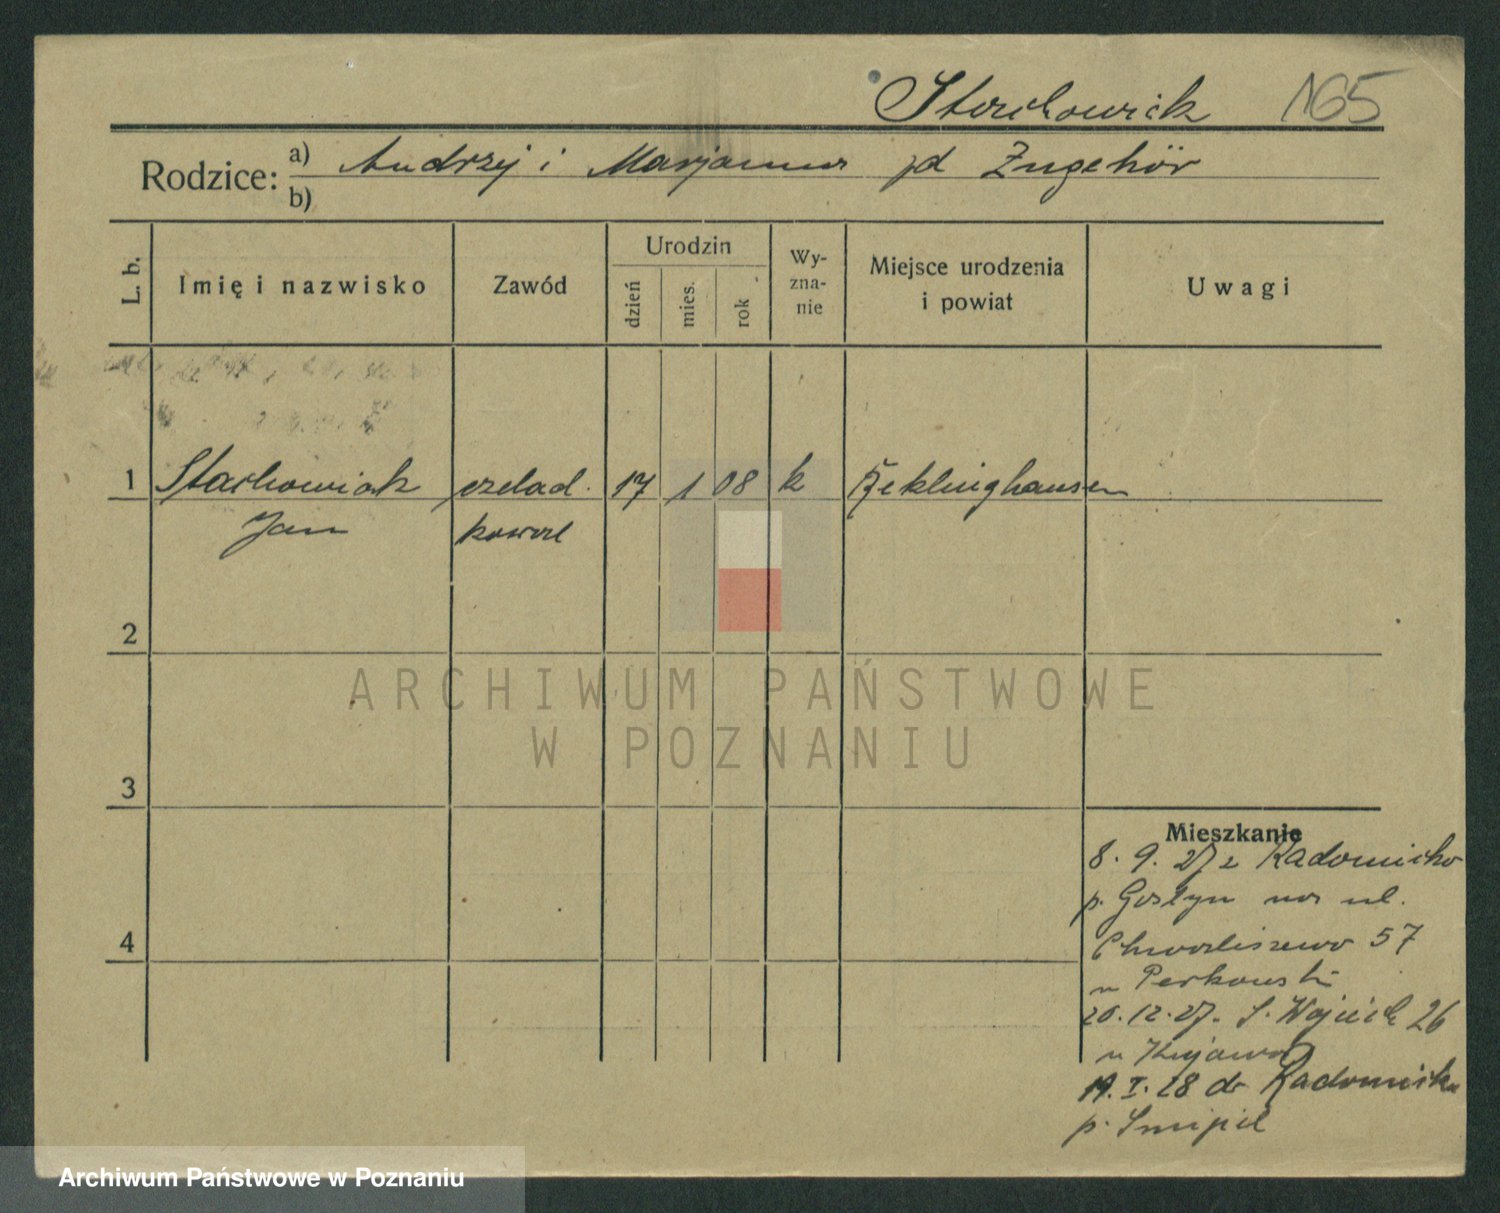 Stachowiak 165
Rodzice: a) Andrzej i Marjanna zd Zugehör
b)
L. b. Imię i nazwisko Zawód Urodzin dzień mies. rok Wy-zna-nie Miejsce urodzenia i powiat Uwagi
1 Stachowiak czelad. 17 1 08 k Reklinghausen
Jan kowal
2
3
4
Mieszkanie
8. 9. 27 z Radomicko
p. Gostyn na ul.
Chwaliszewo 57
u Perkowski
20.12.27. S. Wojciech 26
u Kujawa
19. I. 28 do Radomicka
p. Śmigiel
ARCHIWUM PAŃSTWOWE
W POZNANIU
Archiwum Państwowe w Poznaniu